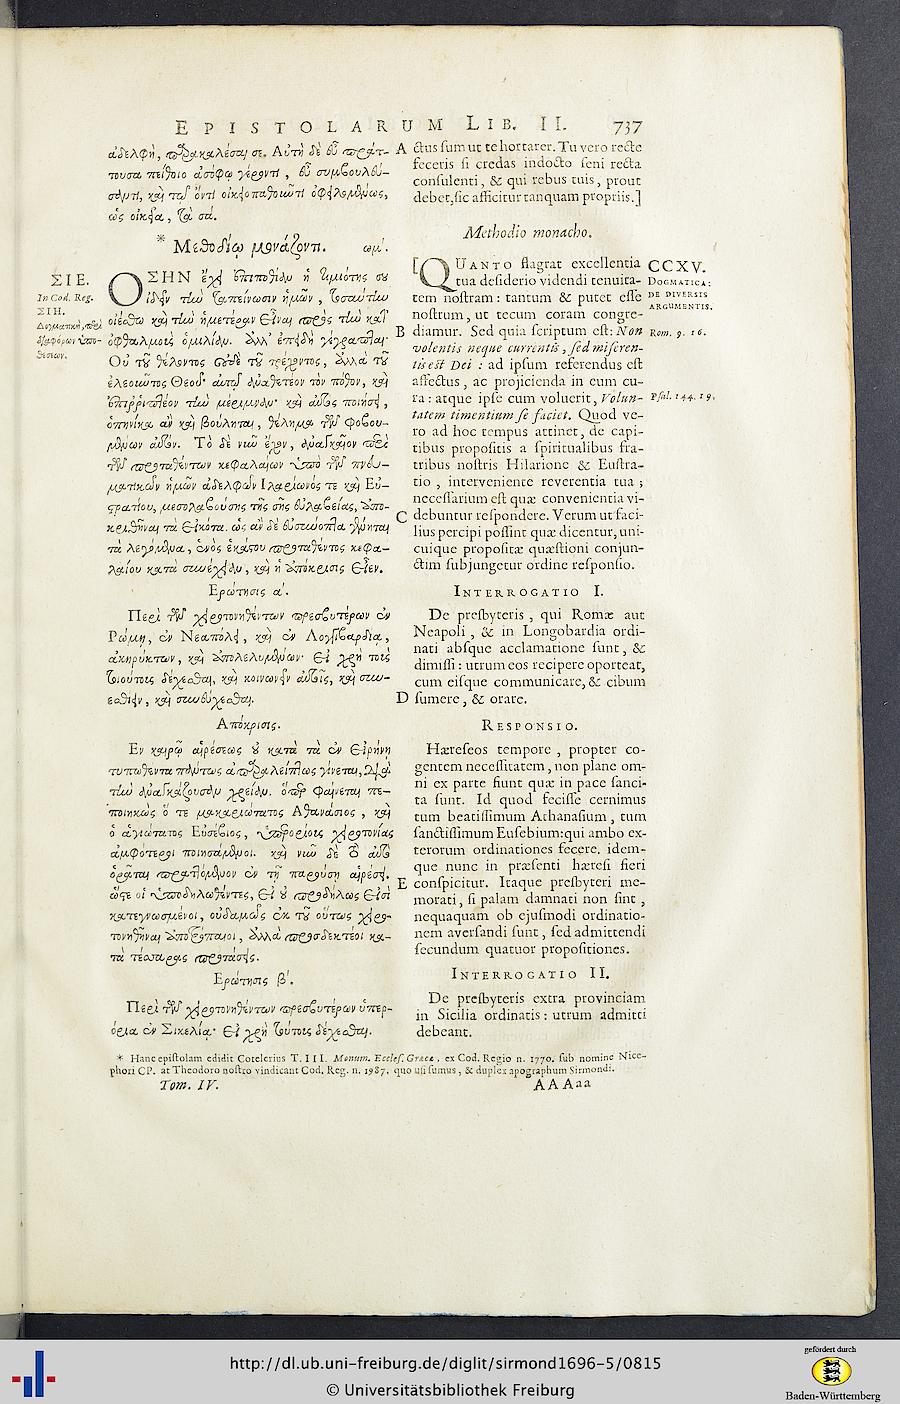 EPISTOLARUM LIB. II. 737
ἀδελφὴ, παρακαλέσαι σε. Αὐτὴ δὲ εὖ πράτ-
τουσα πείθοιο ἀσόφῳ γέροντι, εὖ συμβουλεύ-
σαντι, καὶ τῷ ὄντι οἰκειοπαθοῦντι ὀφειλομένως,
ὡς οἰκεῖα, τὰ σά.
* Μεθοδίῳ μονάζοντι. ωμ'.
ΣΙΕ.
In Cod. Reg.
ΣΙΗ.
Δογματικὴ, περὶ
διαφόρων ὑπο-
θέσεων.
ΟΣΗΝ ἔχει ἐπιποθίαν ἡ τιμιότης σου
ἰδεῖν τὴν ταπείνωσιν ἡμῶν, τοσαύτην
οἰέσθω καὶ τὴν ἡμετέραν εἶναι πρὸς τὴν κατ'
ὀφθαλμοὺς ὁμιλίαν. ἀλλ' ἐπειδὴ γέγραπται·
Οὐ τοῦ θέλοντος οὐδὲ τοῦ τρέχοντος, ἀλλὰ τοῦ
ἐλεοῦντος Θεοῦ· αὐτῷ ἀναθετέον τὸν πόθον, καὶ
ἐπιρριπτέον τὴν μέριμναν· καὶ αὐτὸς ποιήσει,
ὁπηνίκα ἂν καὶ βούληται, θέλημα τῶν φοβου-
μένων αὐτόν. Τὸ δὲ νῦν ἔχον, ἀναγκαῖον περὶ
τῶν προταθέντων κεφαλαίων ὑπὸ τῶν πνευ-
ματικῶν ἡμῶν ἀδελφῶν Ιλαρίωνός τε καὶ Εὐ-
στρατίου, μεσολαβούσης τῆς σῆς εὐλαβείας, ἀπο-
κριθῆναι τὰ εἰκότα. ὡς ἂν δὲ εὐσύνοπτα γένηται
τὰ λεγόμενα, ἑνὸς ἑκάστου προταθέντος κεφα-
λαίου κατὰ συνέχειαν, καὶ ἡ ἀπόκρισις εἶεν.
Ερώτησις α'.
Περὶ τῶν χειροτονηθέντων πρεσβυτέρων ἐν
Ρώμῃ, ἐν Νεαπόλει, καὶ ἐν Λογγιβαρδίᾳ,
ἀκηρύκτων, καὶ ἀπολελυμένων· εἰ χρὴ τοὺς
τοιούτους δέχεσθαι, καὶ κοινωνεῖν αὐτοῖς, καὶ συν-
εσθίειν, καὶ συνεύχεσθαι.
Απόκρισις.
Εν καιρῷ αἱρέσεως οὐ κατὰ τὰ ἐν εἰρήνῃ
τυπωθέντα πάντως ἀπαραλείπτως γίνεται, διὰ
τὴν ἀναγκάζουσαν χρείαν. ὅπερ φαίνεται πε-
ποιηκὼς ὅ τε μακαριώτατος Αθανάσιος, καὶ
ὁ ἁγιώτατος Εὐσέβιος, ὑπερορίοις χειροτονίας
ἀμφότεροι ποιησάμενοι. καὶ νῦν δὲ τὸ αὐτὸ
ὁρᾶται πραττόμενον ἐν τῇ παρούσῃ αἱρέσει.
ὥστε οἱ ὑποδηλωθέντες, εἰ οὐ προδήλως εἰσὶ
κατεγνωσμένοι, οὐδαμῶς ἐκ τοῦ οὕτως χειρο-
τονηθῆναι ἀποτρόπαιοι, ἀλλὰ προσδεκτέοι κα-
τὰ τέσσαρας προτάσεις.
Ερώτησις β'.
Περὶ τῶν χειροτονηθέντων πρεσβυτέρων ὑπερ-
όρια ἐν Σικελίᾳ· εἰ χρὴ τούτους δέχεσθαι.
A ctus sum ut te hortarer. Tu vero recte
feceris si credas indocto seni recta
consulenti, & qui rebus tuis, prout
debet, sic afficitur tanquam propriis.]
Methodio monacho.
[QUANTO flagrat excellentia
tua desiderio videndi tenuita-
tem nostram: tantum & putet esse
nostrum, ut tecum coram congre-
B diamur. Sed quia scriptum est: Non
volentis neque currentis, sed miseren-
tis est Dei: ad ipsum referendus est
affectus, ac projicienda in eum cu-
ra: atque ipse cum voluerit, Volun-
tatem timentium se faciet. Quod ve-
ro ad hoc tempus attinet, de capi-
tibus propositis a spiritualibus fra-
tribus nostris Hilarione & Eustra-
tio, interveniente reverentia tua;
necessarium est quæ convenientia vi-
C debuntur respondere. Verum ut faci-
lius percipi possint quæ dicentur, uni-
cuique propositæ quæstioni conjun-
ctim subjungetur ordine responsio.
INTERROGATIO I.
De presbyteris, qui Romæ aut
Neapoli, & in Longobardia ordi-
nati absque acclamatione sunt, &
dimissi: utrum eos recipere oporteat,
cum eisque communicare, & cibum
D sumere, & orare.
RESPONSIO.
Hæreseos tempore, propter co-
gentem necessitatem, non plane om-
ni ex parte fiunt quæ in pace sanci-
ta sunt. Id quod fecisse cernimus
tum beatissimum Athanasium, tum
sanctissimum Eusebium: qui ambo ex-
terorum ordinationes fecere. idem-
que nunc in præsenti hæresi fieri
E conspicitur. Itaque presbyteri me-
morati, si palam damnati non sint,
nequaquam ob ejusmodi ordinatio-
nem aversandi sunt, sed admittendi
secundum quatuor propositiones.
INTERROGATIO II.
De presbyteris extra provinciam
in Sicilia ordinatis: utrum admitti
debeant.
CCXV.
DOGMATICA:
DE DIVERSIS
ARGUMENTIS.
Rom. 9. 16.
Psal. 144. 19.
* Hanc epistolam edidit Cotelerius T. III. Monum. Eccles. Græcæ, ex Cod. Regio n. 1770. sub nomine Nice-
phori CP. at Theodoro nostro vindicant Cod. Reg. n. 1987. quo usi sumus, & duplex apographum Sirmondi.
Tom. IV. AAAaa
http://dl.ub.uni-freiburg.de/diglit/sirmond1696-5/0815
© Universitätsbibliothek Freiburg
gefördert durch
Baden-Württemberg